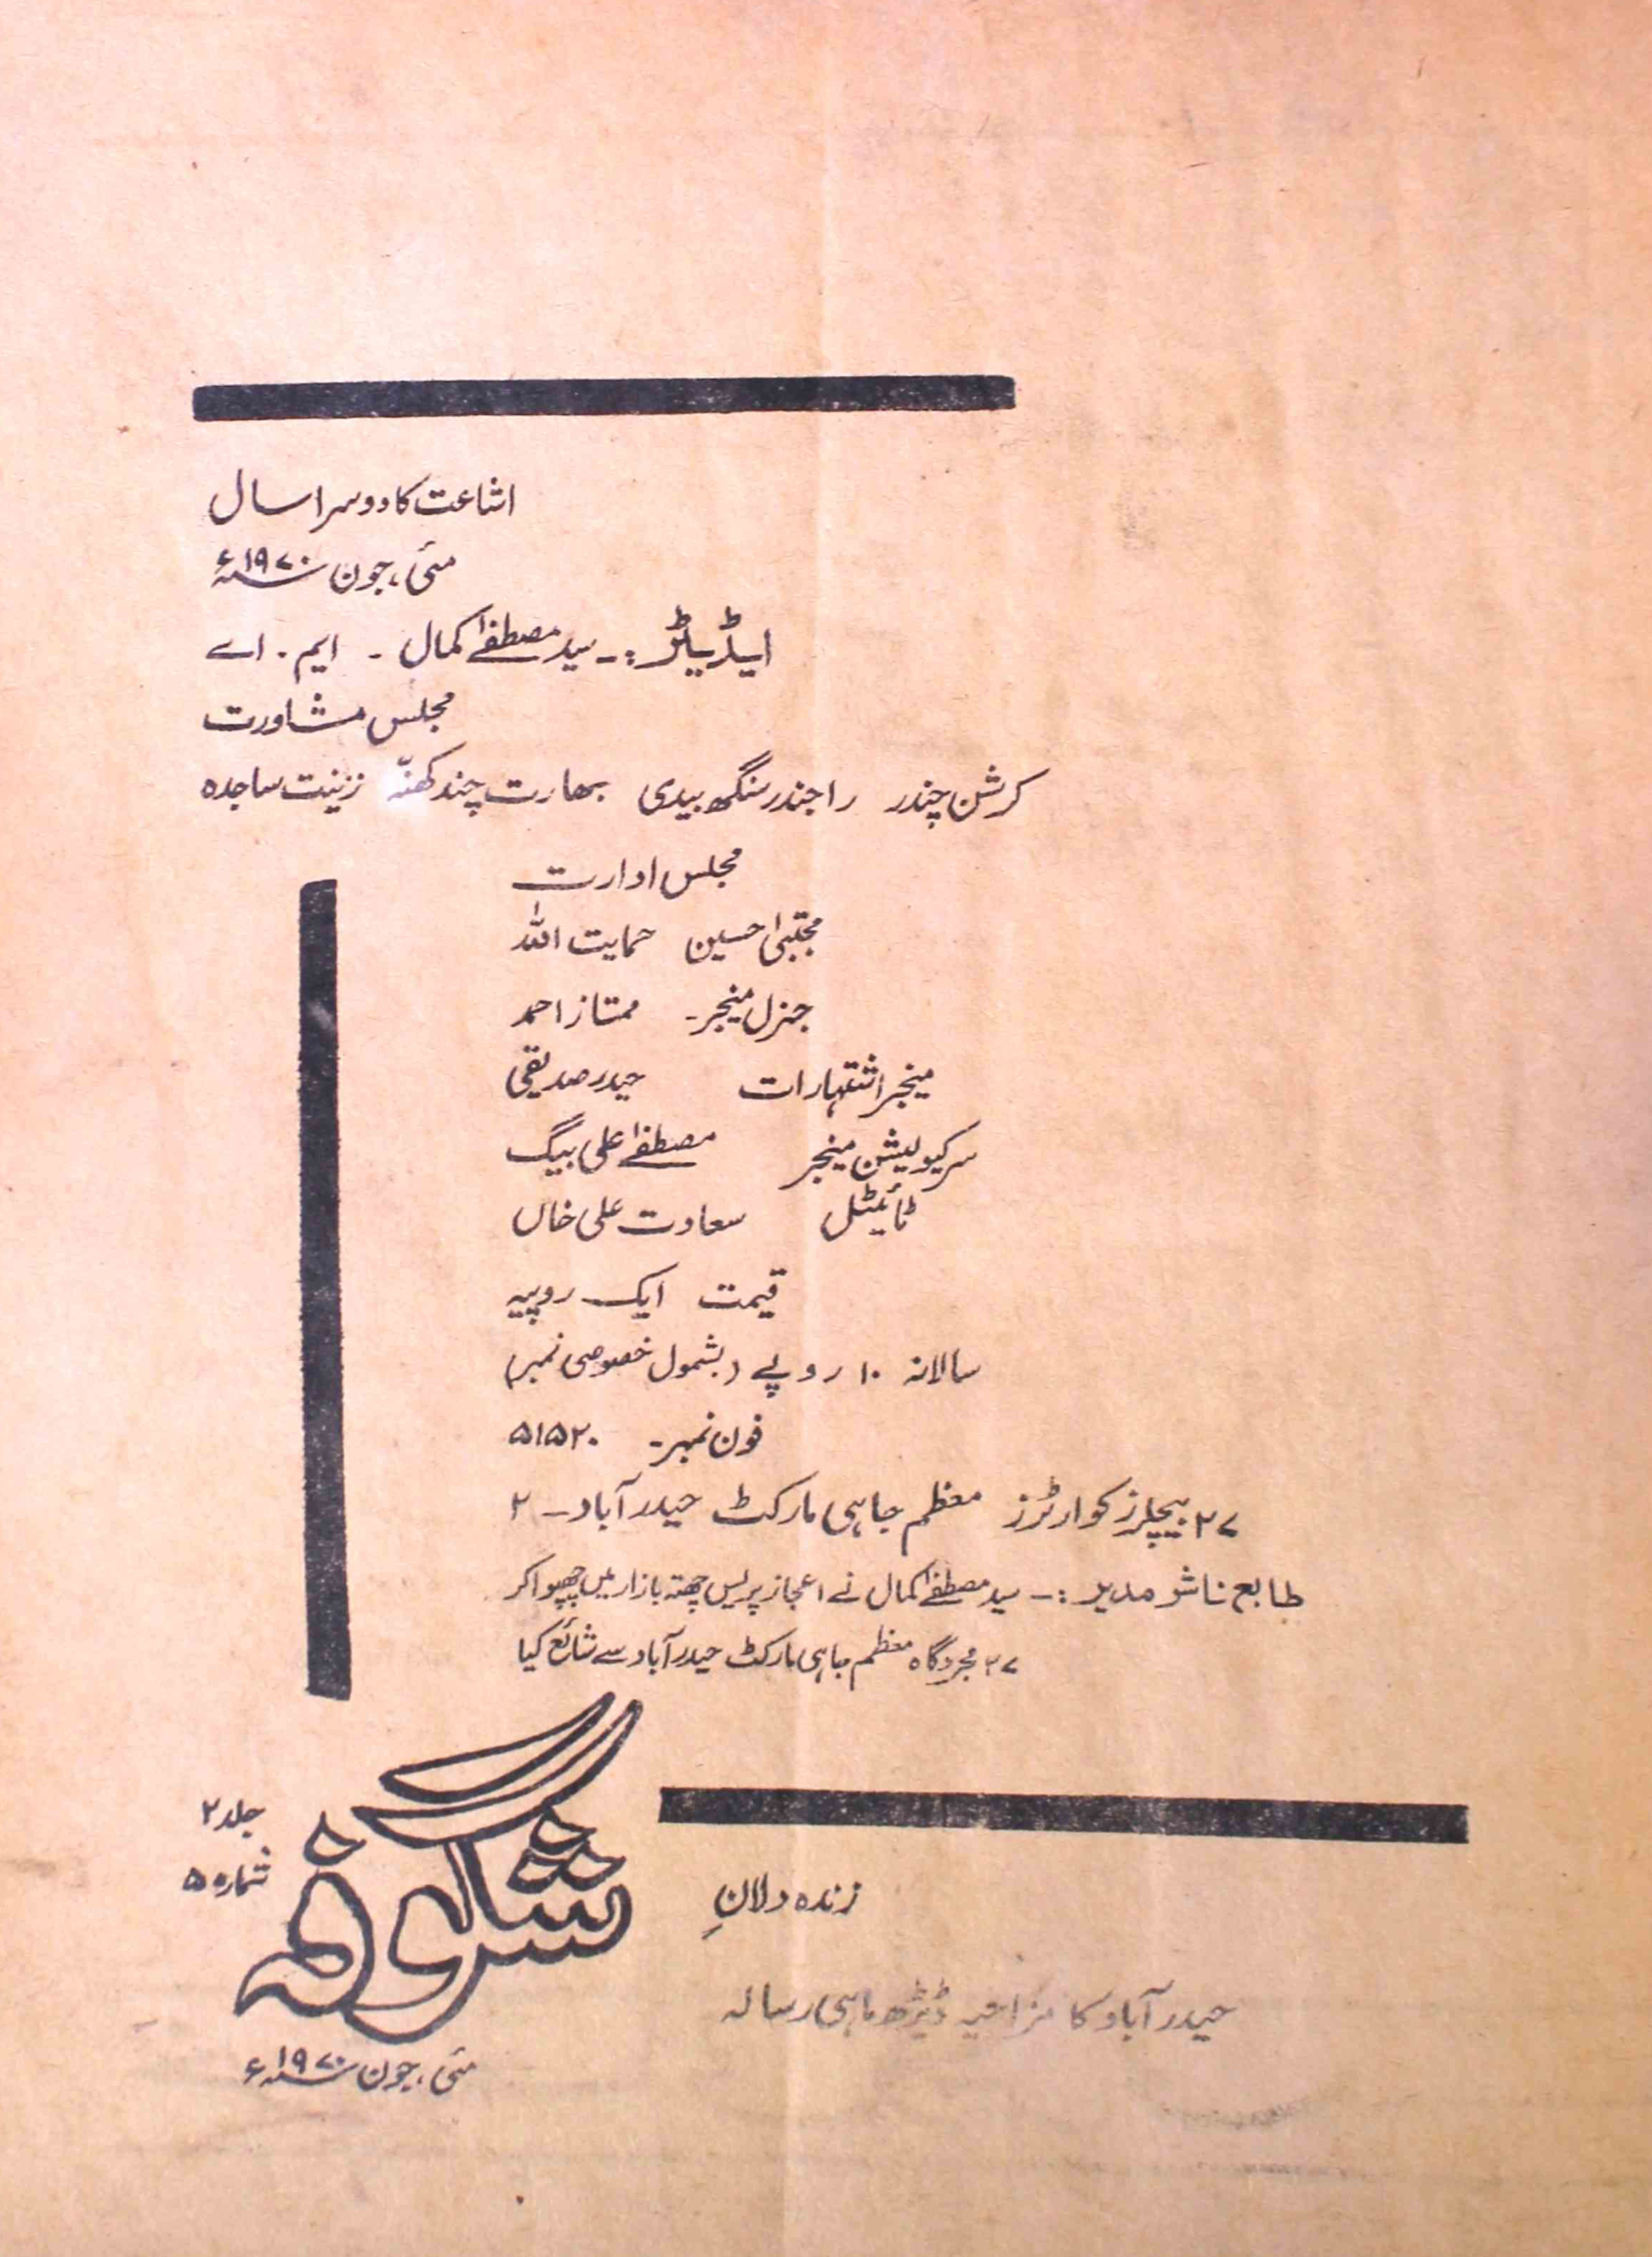 اشاعت کا دوسرا سال
مئی، جون ۱۹۷۰ء
ایڈیٹر :۔ سید مصطفےٰ کمال ۔ ایم ۔ اے
مجلس مشاورت
کرشن چندر راجندر سنگھ بیدی بھارت چند کھنّہ زینت ساجدہ
مجلس ادارت
مجتبیٰ حسین حمایت اللہ
جنرل منیجر۔ ممتاز احمد
منیجر اشتہارات حیدر صدیقی
سرکیولیشن منیجر مصطفےٰ علی بیگ
ٹائیٹل سعادت علی خاں
قیمت ایک روپیہ
سالانہ ۱۰ روپے (بشمول خصوصی نمبر)
فون نمبر۔ ۵۱۵۲۰
۲۷ بیچلرز کوارٹرز معظم جاہی مارکٹ حیدرآباد۔ ۲
طابع ناشر مدیر :۔ سید مصطفےٰ کمال نے اعجاز پریس چھتہ بازار میں چھپوا کر
۲۷ مجردگاہ معظم جاہی مارکٹ حیدرآباد سے شائع کیا
شگوفہ
جلد ۲
شمارہ ۵
زندہ دلانِ
حیدرآباد کا مزاحیہ ڈیڑھ ماہی رسالہ
مئی، جون ۱۹۷۰ء